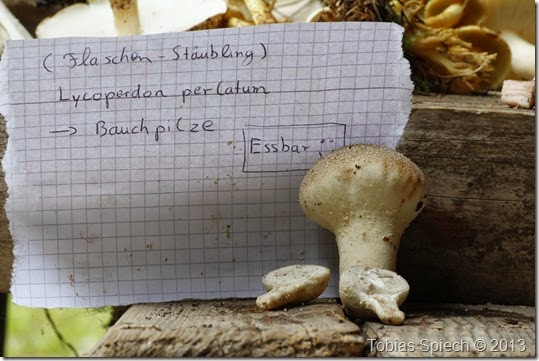 (Flaschen-Stäubling)
Lycoperdon perlatum
→ Bauchpilze
Essbar
Tobias Spiech © 2013